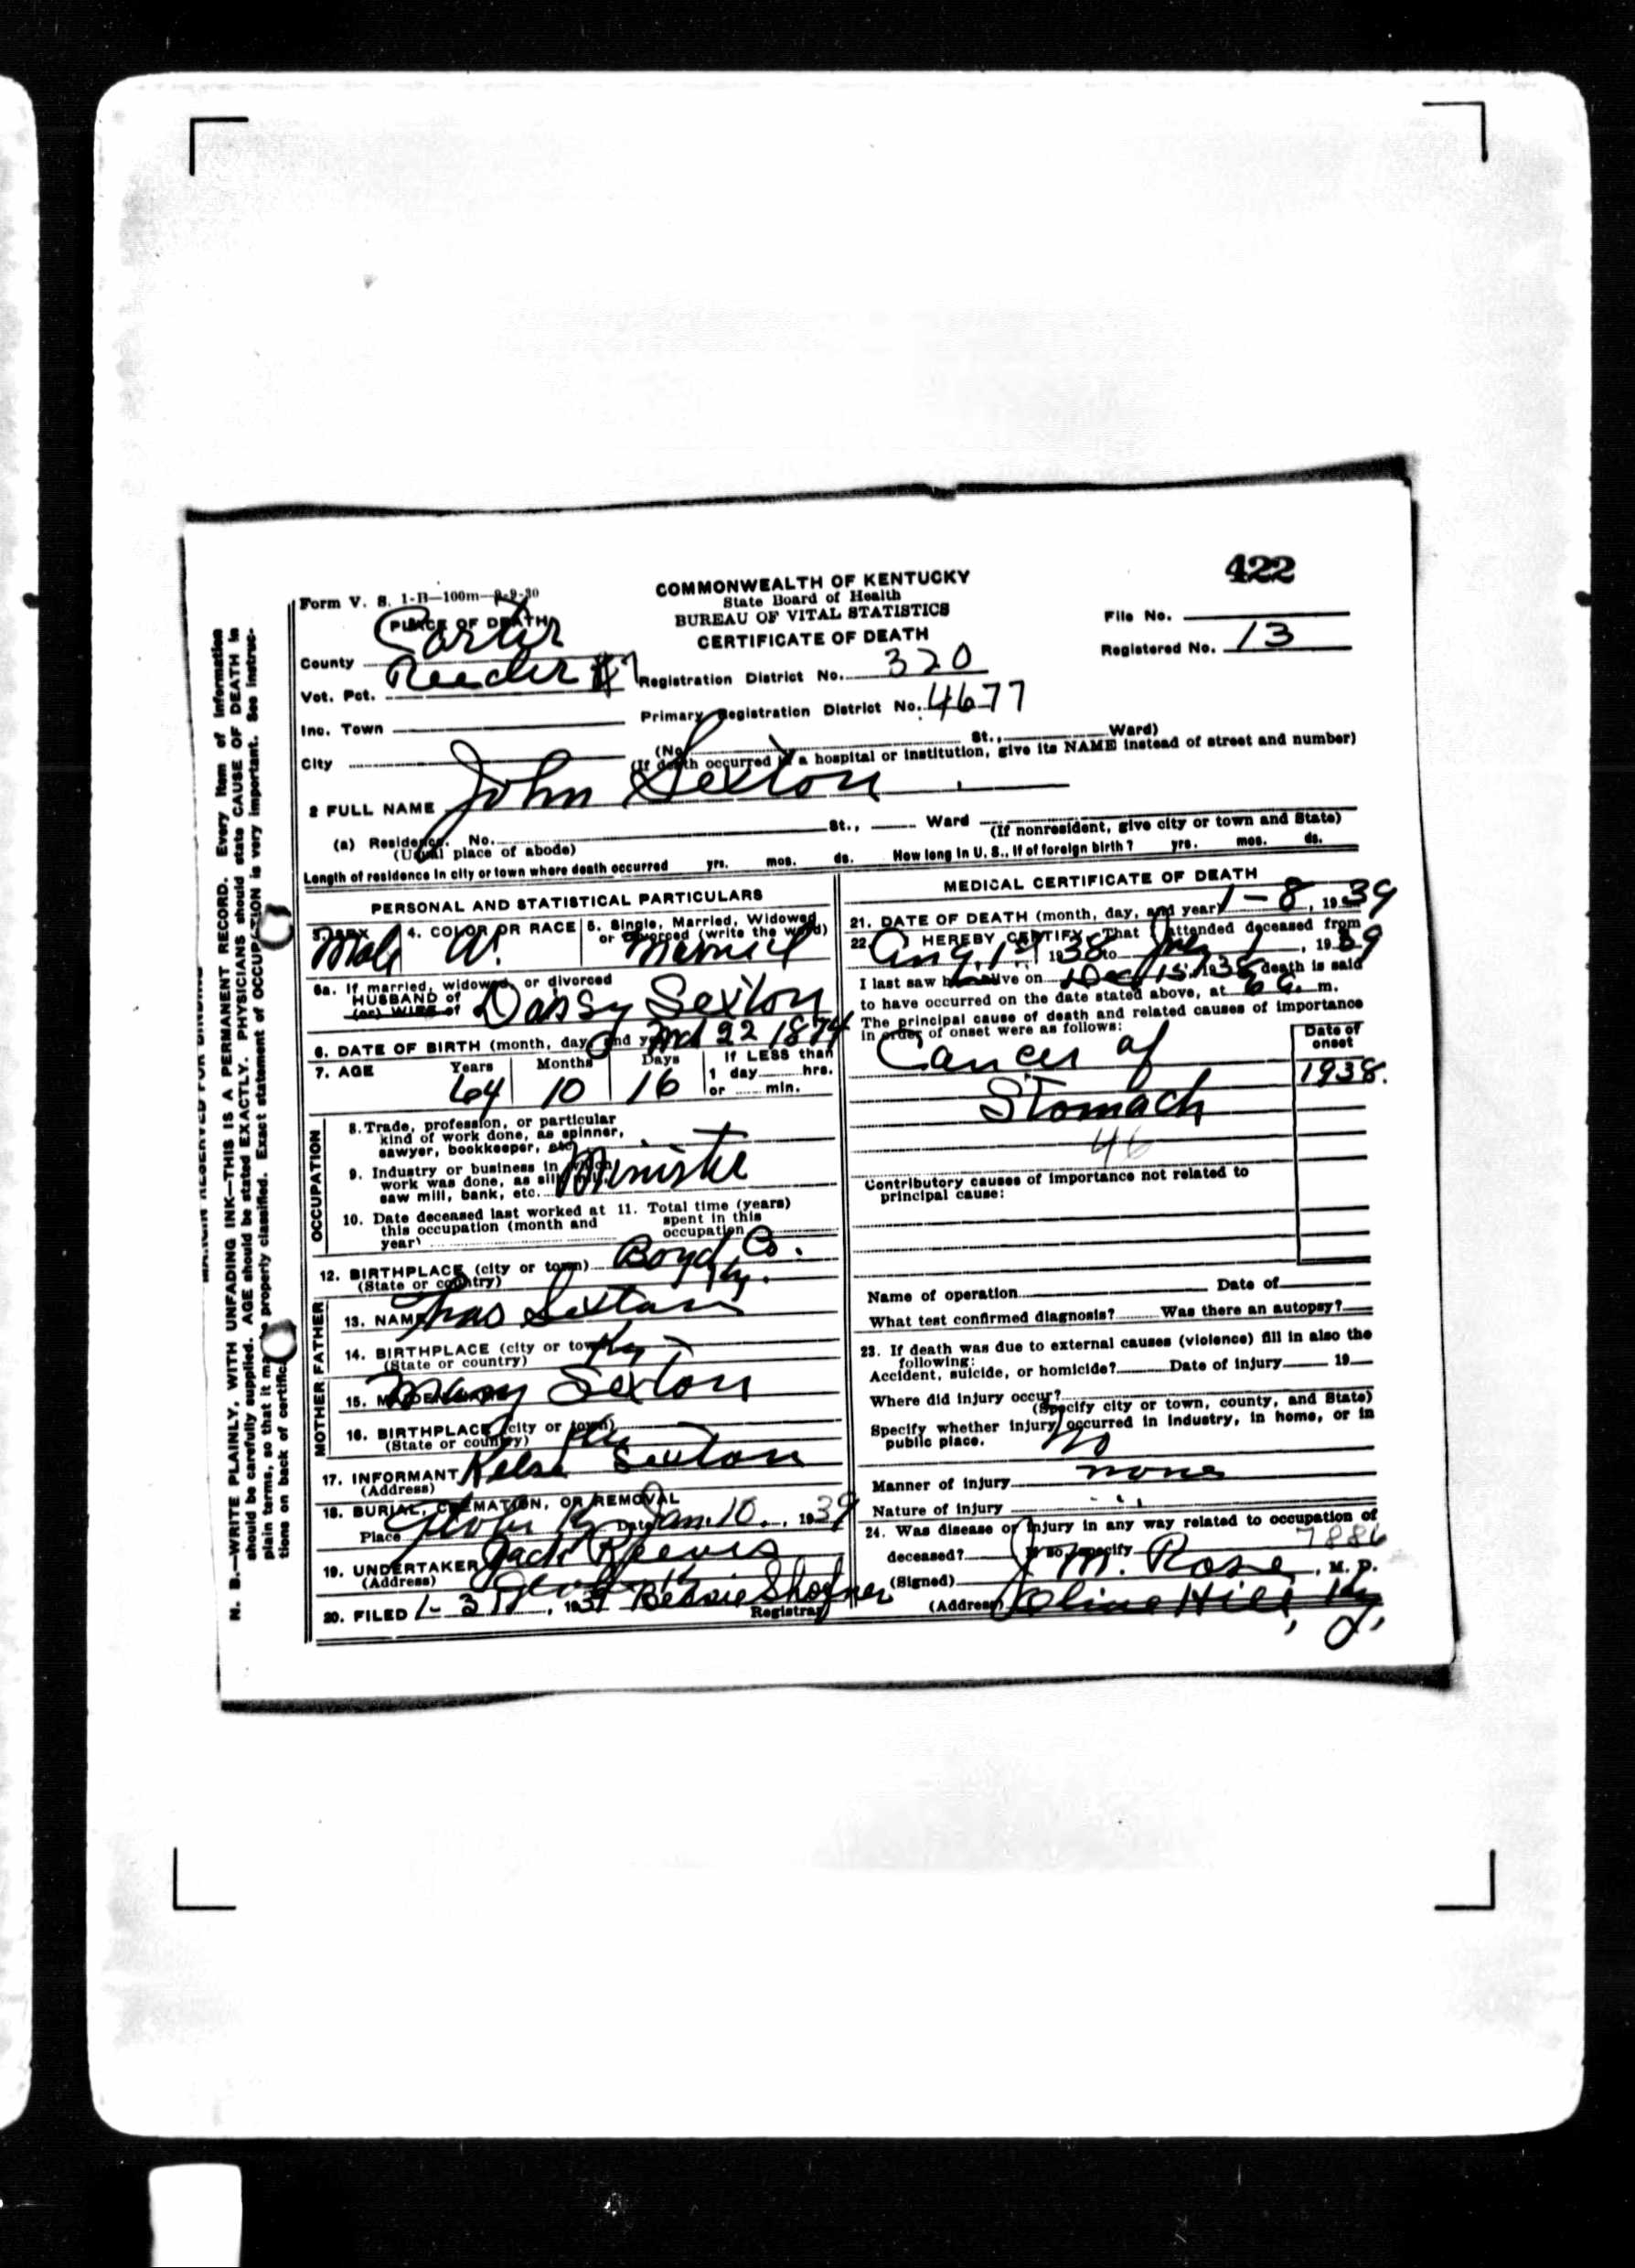 422
Form V. S. 1-B—100m—9-9-30
COMMONWEALTH OF KENTUCKY
State Board of Health
BUREAU OF VITAL STATISTICS
CERTIFICATE OF DEATH
File No.
Registered No. 13
PLACE OF DEATH
County Carter
Vot. Pct. Reeder #7
Registration District No. 320
Inc. Town
Primary Registration District No. 4677
City
(No. St., Ward)
(If death occurred in a hospital or institution, give its NAME instead of street and number)
2 FULL NAME John Sexton
(a) Residence. No. St., Ward
(Usual place of abode) (If nonresident, give city or town and State)
Length of residence in city or town where death occurred yrs. mos. ds. How long in U. S., if of foreign birth? yrs. mos. ds.
PERSONAL AND STATISTICAL PARTICULARS
3. SEX Male 4. COLOR OR RACE W. 5. Single, Married, Widowed
or Divorced (write the word) Married
5a. If married, widowed, or divorced
HUSBAND of
(or) WIFE of Dassy Sexton
6. DATE OF BIRTH (month, day, and year) 22 1874
7. AGE Years 64 Months 10 Days 16 If LESS than
1 day hrs.
or min.
OCCUPATION
8. Trade, profession, or particular
kind of work done, as spinner,
sawyer, bookkeeper, etc.
9. Industry or business in which
work was done, as silk mill,
saw mill, bank, etc. Ministe
10. Date deceased last worked at
this occupation (month and
year)
11. Total time (years)
spent in this
occupation
12. BIRTHPLACE (city or town) Boyd Co.
(State or country) Ky.
FATHER
13. NAME Sexton
14. BIRTHPLACE (city or town) Ky
(State or country)
MOTHER
15. MAIDEN NAME Mary Sexton
16. BIRTHPLACE (city or town)
(State or country) Ky
17. INFORMANT Kelse Sexton
(Address)
18. BURIAL, CREMATION, OR REMOVAL
Place Ky Date Jan. 10., 1939
19. UNDERTAKER Jack Reeves
(Address)
20. FILED 1- 1939 Bessie Shofner
Registrar
MEDICAL CERTIFICATE OF DEATH
21. DATE OF DEATH (month, day, and year) 1-8, 1939
22. I HEREBY CERTIFY, That I attended deceased from
Aug. 1st, 1938 to , 1939
I last saw h alive on Dec 15, 1938 death is said
to have occurred on the date stated above, at 6 a. m.
The principal cause of death and related causes of importance
in order of onset were as follows:
Date of
onset
Cancer of 1938.
Stomach
46
Contributory causes of importance not related to
principal cause:
Name of operation Date of
What test confirmed diagnosis? Was there an autopsy?
23. If death was due to external causes (violence) fill in also the
following:
Accident, suicide, or homicide? Date of injury 19
Where did injury occur?
(Specify city or town, county, and State)
Specify whether injury occurred in industry, in home, or in
public place. No
Manner of injury none
Nature of injury
24. Was disease or injury in any way related to occupation of
deceased? If so, specify 7886
(Signed) J M. Rose, M. D.
(Address) Olive Hill, Ky,
N. B.—WRITE PLAINLY, WITH UNFADING INK—THIS IS A PERMANENT RECORD. Every item of information
should be carefully supplied. AGE should be stated EXACTLY. PHYSICIANS should state CAUSE OF DEATH in
plain terms, so that it may be properly classified. Exact statement of OCCUPATION is very important. See instruc-
tions on back of certificate.
MARGIN RESERVED FOR BINDING